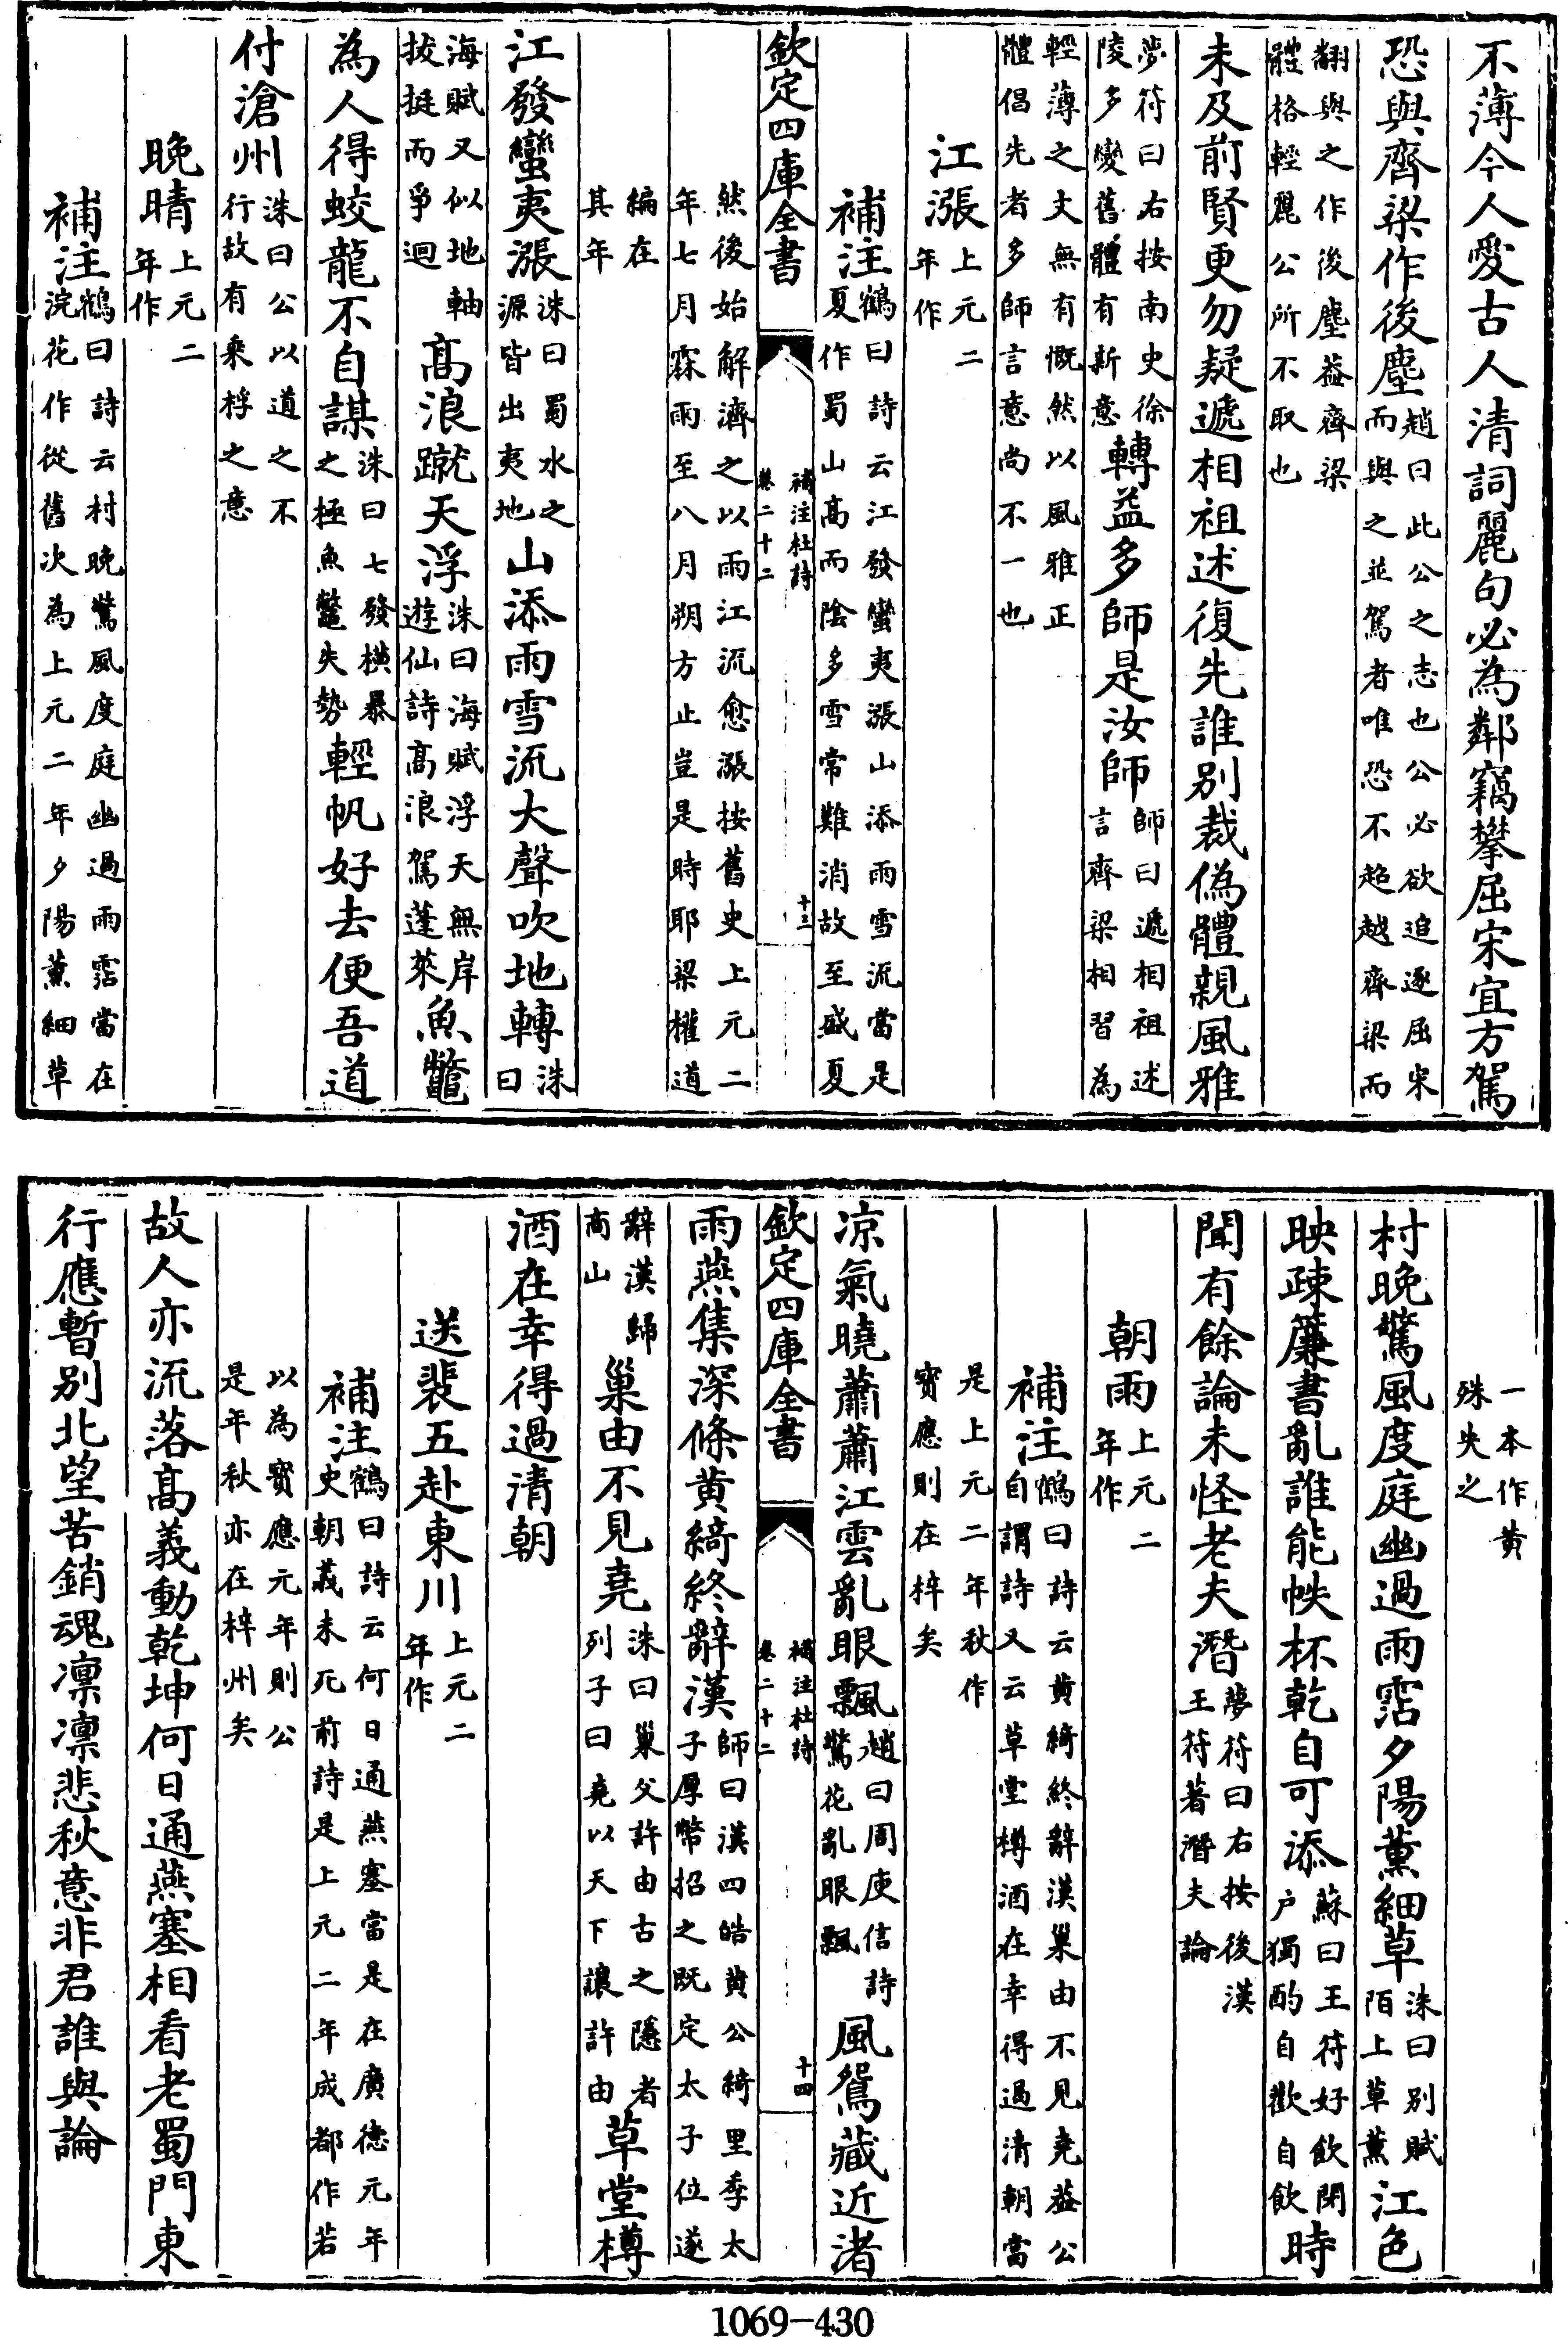 不薄今人愛古人清詞麗句必為鄰竊攀屈宋宜方駕
恐與齊梁作後塵趙曰此公之志也公必欲追逐屈宋而與之並駕者唯恐不超越齊梁而
翻與之作後塵葢齊梁體格輕麗公所不取也
未及前賢更勿疑遞相祖述復先誰別裁偽體親風雅
夢符曰右按南史徐陵多變舊體有新意轉益多師是汝師師曰遞相祖述言齊梁相習為
輕薄之文無有慨然以風雅正體倡先者多師言意尚不一也
江漲上元二年作
補注鶴曰詩云江發蠻夷漲山添雨雪流當是夏作蜀山高而陰多雪常難消故至盛夏
欽定四庫全書 補注杜詩卷二十二 十三
然後始解濟之以雨江流愈漲按舊史上元二年七月霖雨至八月朔方止豈是時耶梁權道
編在其年
江發蠻夷漲洙曰蜀水之源皆出夷地山添雨雪流大聲吹地轉洙曰
海賦又似地軸拔挺而爭迴高浪蹴天浮洙曰海賦浮天無岸遊仙詩高浪駕蓬萊魚鼈
為人得蛟龍不自謀洙曰七發橫暴之極魚鼈失勢輕帆好去便吾道
付滄州洙曰公以道之不行故有乘桴之意
晚晴上元二年作
補注鶴曰詩云村晚驚風度庭幽過雨霑當在浣花作從舊次為上元二年夕陽薰細草
一本作黄殊失之
村晚驚風度庭幽過雨霑夕陽薰細草洙曰別賦陌上草薰江色
映疎簾書亂誰能帙杯乾自可添蘇曰王符好飲閉户獨酌自歡自飲時
聞有餘論未怪老夫潛夢符曰右按後漢王符著潛夫論
朝雨上元二年作
補注鶴曰詩云黄綺終辭漢巢由不見堯葢公自謂詩又云草堂樽酒在幸得過清朝當
是上元二年秋作寶應則在梓矣
凉氣曉蕭蕭江雲亂眼飄趙曰周庾信詩驚花亂眼飄風鴛藏近渚
欽定四庫全書 補注杜詩卷二十二 十四
雨燕集深條黄綺終辭漢師曰漢四皓黄公綺里季太子厚幣招之既定太子位遂
辭漢歸商山巢由不見堯洙曰巢父許由古之隱者列子曰堯以天下讓許由草堂樽
酒在幸得過清朝
送裴五赴東川上元二年作
補注鶴曰詩云何日通燕塞當是在廣德元年史朝義未死前詩是上元二年成都作若
以為寶應元年則公是年秋亦在梓州矣
故人亦流落高義動乾坤何日通燕塞相看老蜀門東
行應暫別北望苦銷魂凛凛悲秋意非君誰與論
1069-430